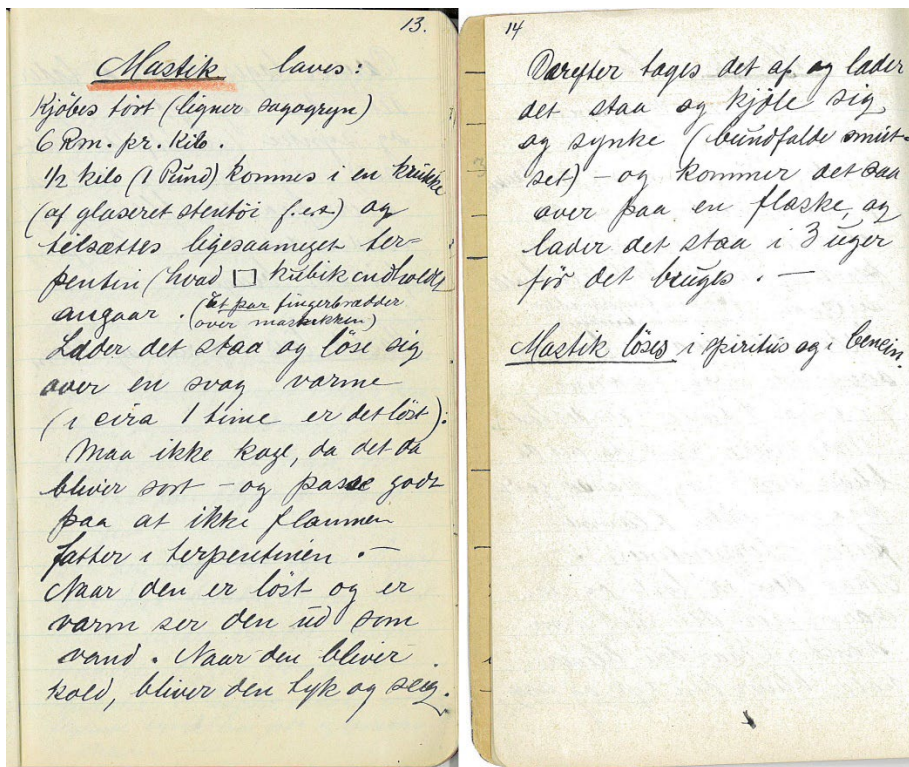 13.
Mastik laves:
Kjöbes tört (ligner sagogryn)
6 Rm. pr. Kilo.
1/2 kilo (1 Pund) kommes i en krukke
(af glaseret stentöi f. ex.) og
tilsættes ligesaameget ter-
pentin (hvad □ kubikindhold
angaar. (Et par fingerbrædder
over mastikken)
Lader det staa og löse sig
over en svag varme
(i cira 1 time er det löst):
Maa ikke koge, da det da
bliver sort - og passe godt
paa at ikke flammen
fatter i terpentinen. -
Naar den er löst og er
varm ser den ud som
vand. Naar den bliver
kold, bliver den tyk og seig.
14
Derefter tages det af og lader
det staa og kjöle sig
og synke (bundfalde smut-
set) - og kommer det saa
over paa en flaske, og
lader det staa i 3 uger
för det bruges. -
Mastik löses i spiritus og i bensin.